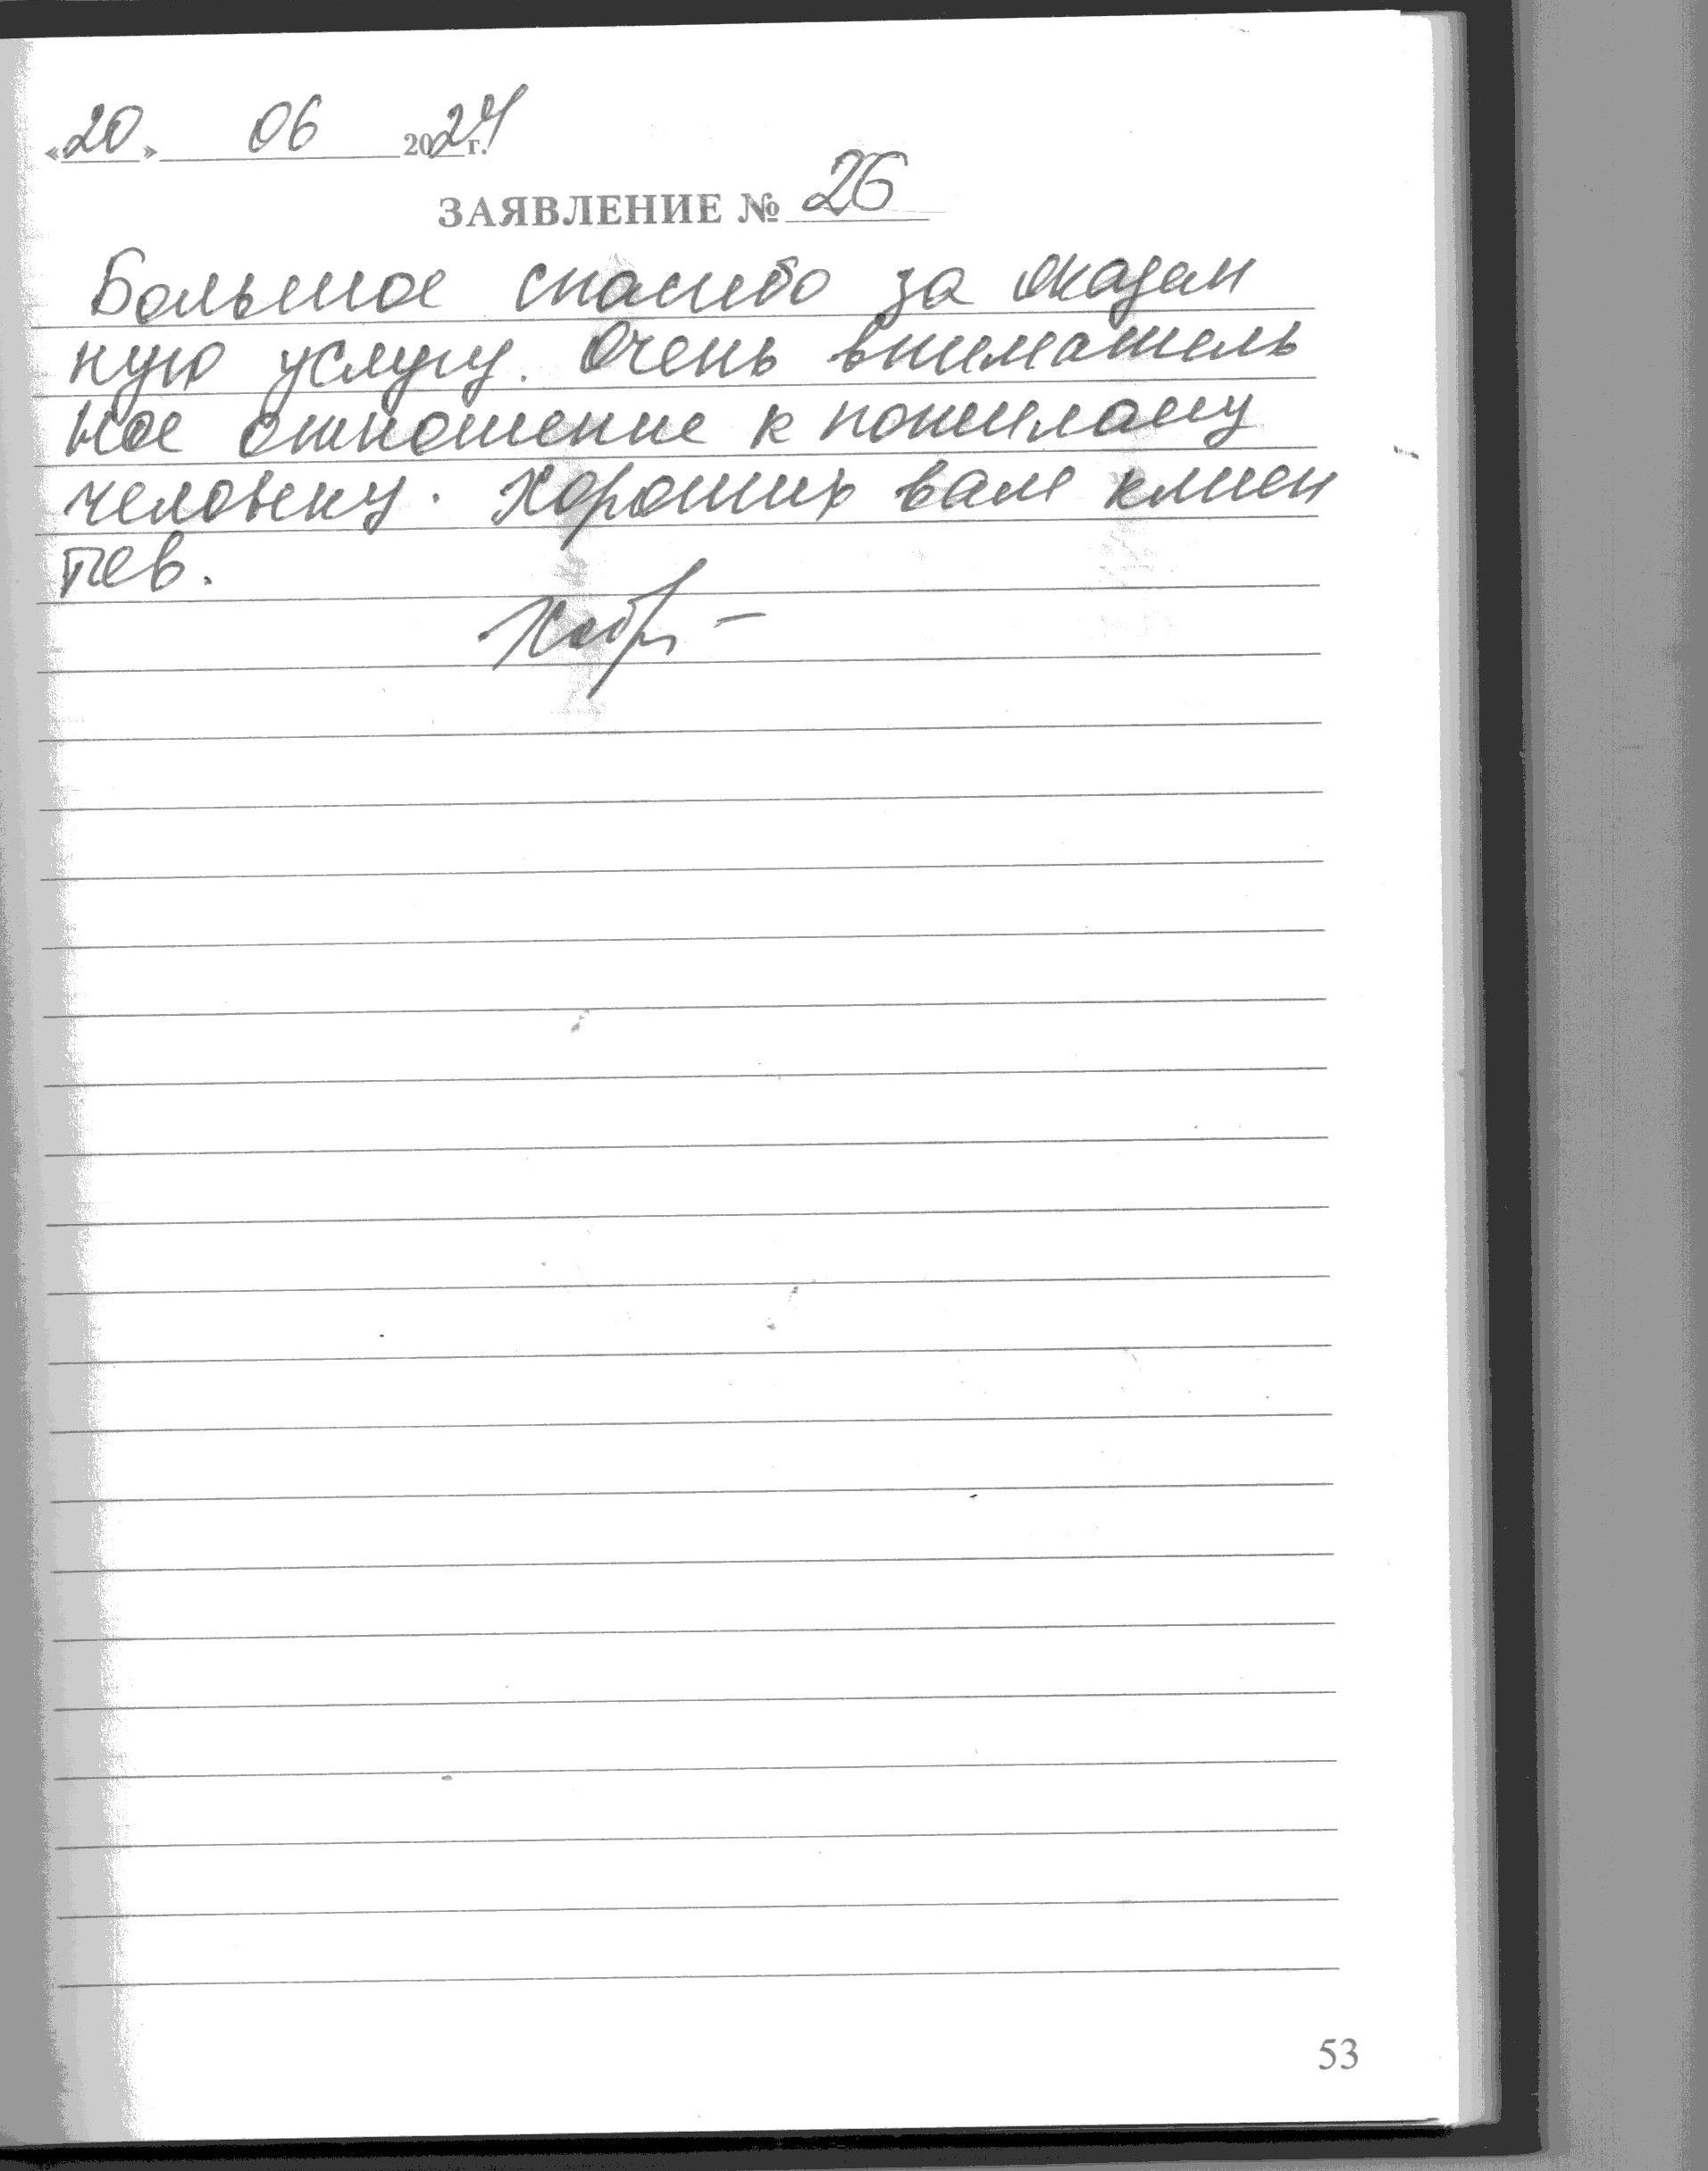 «20» 06 2024 г.
ЗАЯВЛЕНИЕ № 26
Большое спасибо за оказан
ную услугу. Очень вниматель
ное отношение к пожилому
человеку. Хороших вам клиен
тов.
53